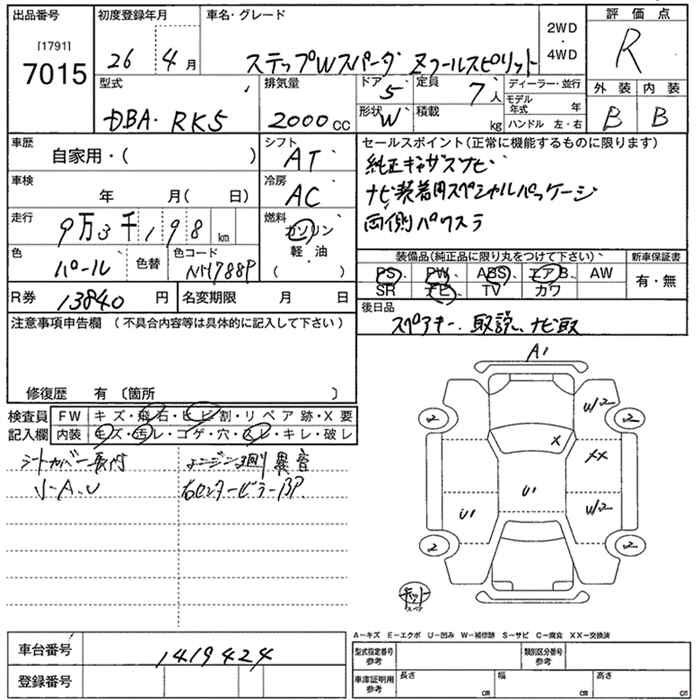 出品番号
[1791]
7015
初度登録年月
26 4月
車名・グレード
ステップWスパーダ Zクールスピリット
2WD
・
4WD
評価点
R
外装 内装
B B
型式
DBA・RK5
排気量
2000cc
ドア
5
定員
7人
形状
W
積載
kg
ディーラー・並行
モデル年式 年
ハンドル 左・右
車歴
自家用・( )
シフト
AT
セールスポイント(正常に機能するものに限ります)
純正ナビ
ナビ装着用スペシャルパッケージ
両側パワスラ
車検
年 月( 日)
冷房
AC
走行
9万3千198km
燃料
ガソリン
軽・油
( )
色
パール
色替
色コード
NH788P
装備品(純正品に限り丸をつけて下さい)
PS、PW、ABS、エアB、AW
SR ナビ、TV カワ
新車保証書
有・無
R券 13840円
名変期限 月 日
後日品
スペアキー、取説、ナビ取
注意事項申告欄(不具合内容等は具体的に記入して下さい)
修復歴 有(箇所 )
検査員記入欄
FW キズ・飛石・ヒビ割・リペア跡・X要
内装 キズ・汚レ・コゲ・穴・スレ・キレ・破レ
シートカバー取付
エンジン廻り異音
小A、U
右センターピラーBP
A1
2
W2
2
X
XX
U1
U1
W2
2
2
スペア
A-キズ E-エクボ U-凹み W-補修跡 S-サビ C-腐食 XX-交換済
車台番号
1419424
登録番号
型式指定番号
参考
類別区分番号
参考
車庫証明用
参考
長さ cm
幅 cm
高さ cm